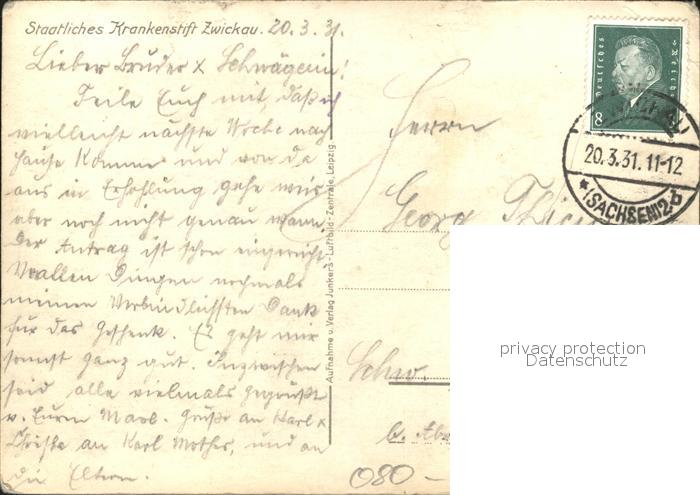 Staatliches Krankenstift Zwickau. 20. 3. 31.
Lieber Bruder & Schwägerin!
Teile Euch mit, daß ich
vielleicht nächste Woche nach
Hause komme und von da
aus in Erhohlung gehe weiß
aber noch nicht genau wann.
Der Antrag ist schon eingereicht
Vor allen Dingen nochmals
meinen Verbindlichsten Dank
für das Geschenk. Es geht mir
sonnst ganz gut. Inzwischen
seid alle vielmals gegrüßt
v. Eurm Grüße an Karl &
an Karl und an
die Eltern.
Aufnahme u. Verlag Junkers-Luftbild-Zentrale, Leipzig.
Herrn
Georg
Deutsches Reich
8
20.3.31.11-12
* (SACHSEN) 2 b
privacy protection
Datenschutz
080-